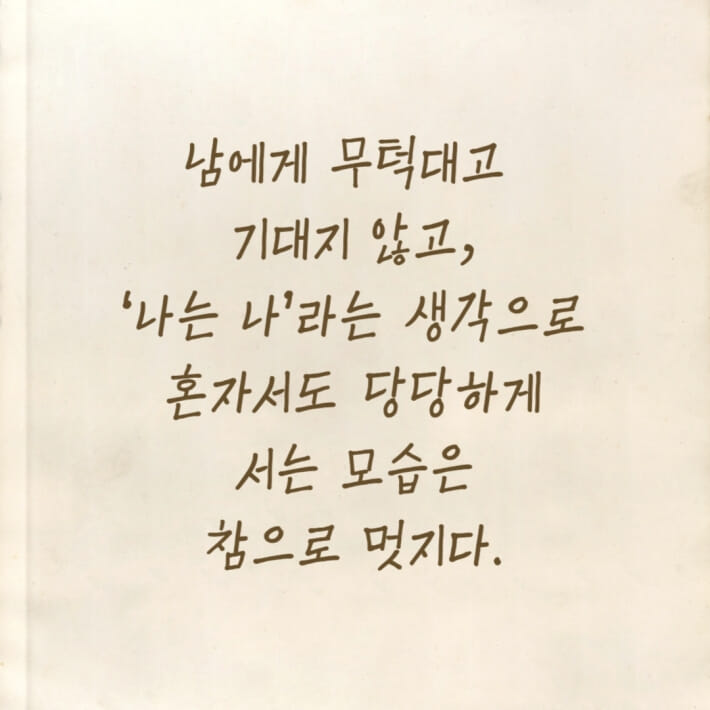 남에게 무턱대고
기대지 않고,
‘나는 나’라는 생각으로
혼자서도 당당하게
서는 모습은
참으로 멋지다.